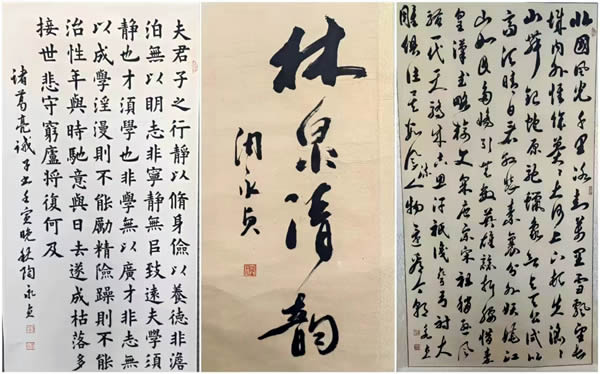 夫君子之行靜以脩身儉以養德非澹
泊無以明志非寧靜無以致遠夫學須
靜也才須學也非學無以廣才非志無
以成學淫漫則不能勵精險躁則不能
治性年與時馳意與日去遂成枯落多
接世悲守窮廬將復何及
诸葛亮诫子书壬寅晚秋陶永贞
林泉清韵
陶永贞
北國風光千里冰封萬里雪飄望長
城内外惟餘莽々大河上下頓失滔々
山舞銀蛇原馳蠟象欲與天公試比
高须晴日看红装素裹分外妖娆江
山如此多嬌引無數英雄競折腰惜秦
皇漢武略輸文采唐宗宋祖稍遜風
骚一代天骄成吉思汗祇識弯弓射大
雕俱往矣数人物還看今朝